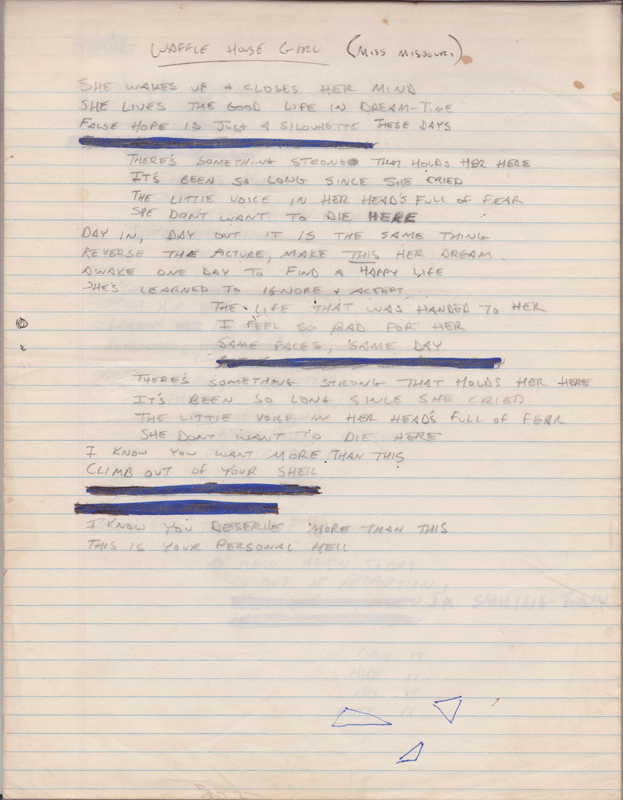 WAFFLE HOUSE GIRL (MISS MISSOURI)
SHE WAKES UP & CLOSES HER MIND
SHE LIVES THE GOOD LIFE IN DREAM-TIME
FALSE HOPE IS JUST A SILOUHETTE THESE DAYS
THERE'S SOMETHING STRONG THAT HOLDS HER HERE
IT'S BEEN SO LONG SINCE SHE CRIED
THE LITTLE VOICE IN HER HEAD'S FULL OF FEAR
SHE DON'T WANT TO DIE HERE
DAY IN, DAY OUT IT IS THE SAME THING
REVERSE THE PICTURE, MAKE THIS HER DREAM
AWAKE ONE DAY TO FIND A HAPPY LIFE
SHE'S LEARNED TO IGNORE & ACCEPT
THE LIFE THAT WAS HANDED TO HER
I FEEL SO BAD FOR HER
SAME FACES, SAME DAY
THERE'S SOMETHING STRONG THAT HOLDS HER HERE
IT'S BEEN SO LONG SINCE SHE CRIED
THE LITTLE VOICE IN HER HEAD'S FULL OF FEAR
SHE DONT WANT TO DIE HERE
I KNOW YOU WANT MORE THAN THIS
CLIMB OUT OF YOUR SHELL
I KNOW YOU DESERVE MORE THAN THIS
THIS IS YOUR PERSONAL HELL